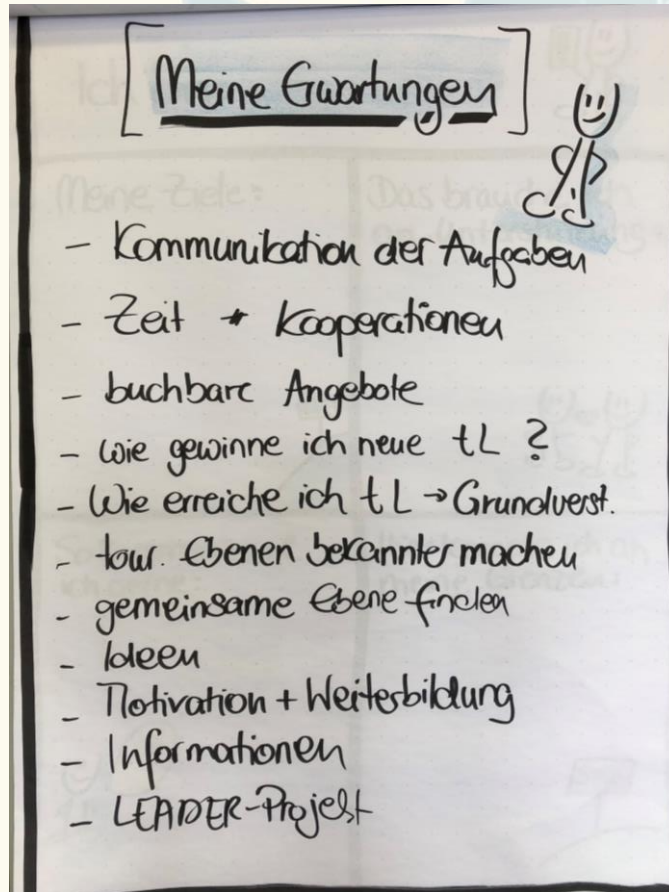 Meine Erwartungen
- Kommunikation der Aufgaben
- Zeit + Kooperationen
- buchbare Angebote
- wie gewinne ich neue tL ?
- Wie erreiche ich tL → Grundverst.
- tour. Ebenen bekannter machen
- gemeinsame Ebene finden
- Ideen
- Motivation + Weiterbildung
- Informationen
- LEADER-Projekt
Ich
Meine Ziele:
Das brauche ich